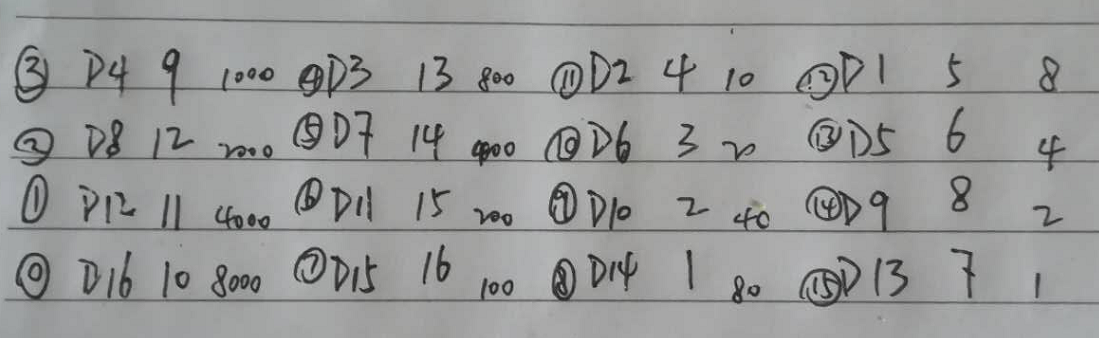 ③ D4 9 1000 ④D3 13 800 ⑪D2 4 10 ⑫D1 5 8
② D8 12 2000 ⑤D7 14 400 ⑩D6 3 20 ⑬D5 6 4
① D12 11 4000 ⑥D11 15 200 ⑨D10 2 40 ⑭D9 8 2
⓪ D16 10 8000 ⑦D15 16 100 ⑧D14 1 80 ⑮D13 7 1